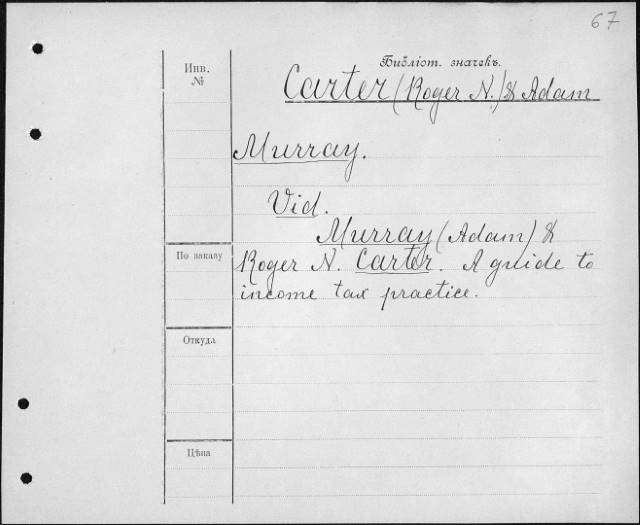 67
Библіот. значекъ.
Инв.
№
Carter (Roger N.) & Adam
Murray.
Vid.
Murray (Adam) &
По заказу
Roger N. Carter. A guide to
income tax practice.
Откуда
Цѣна